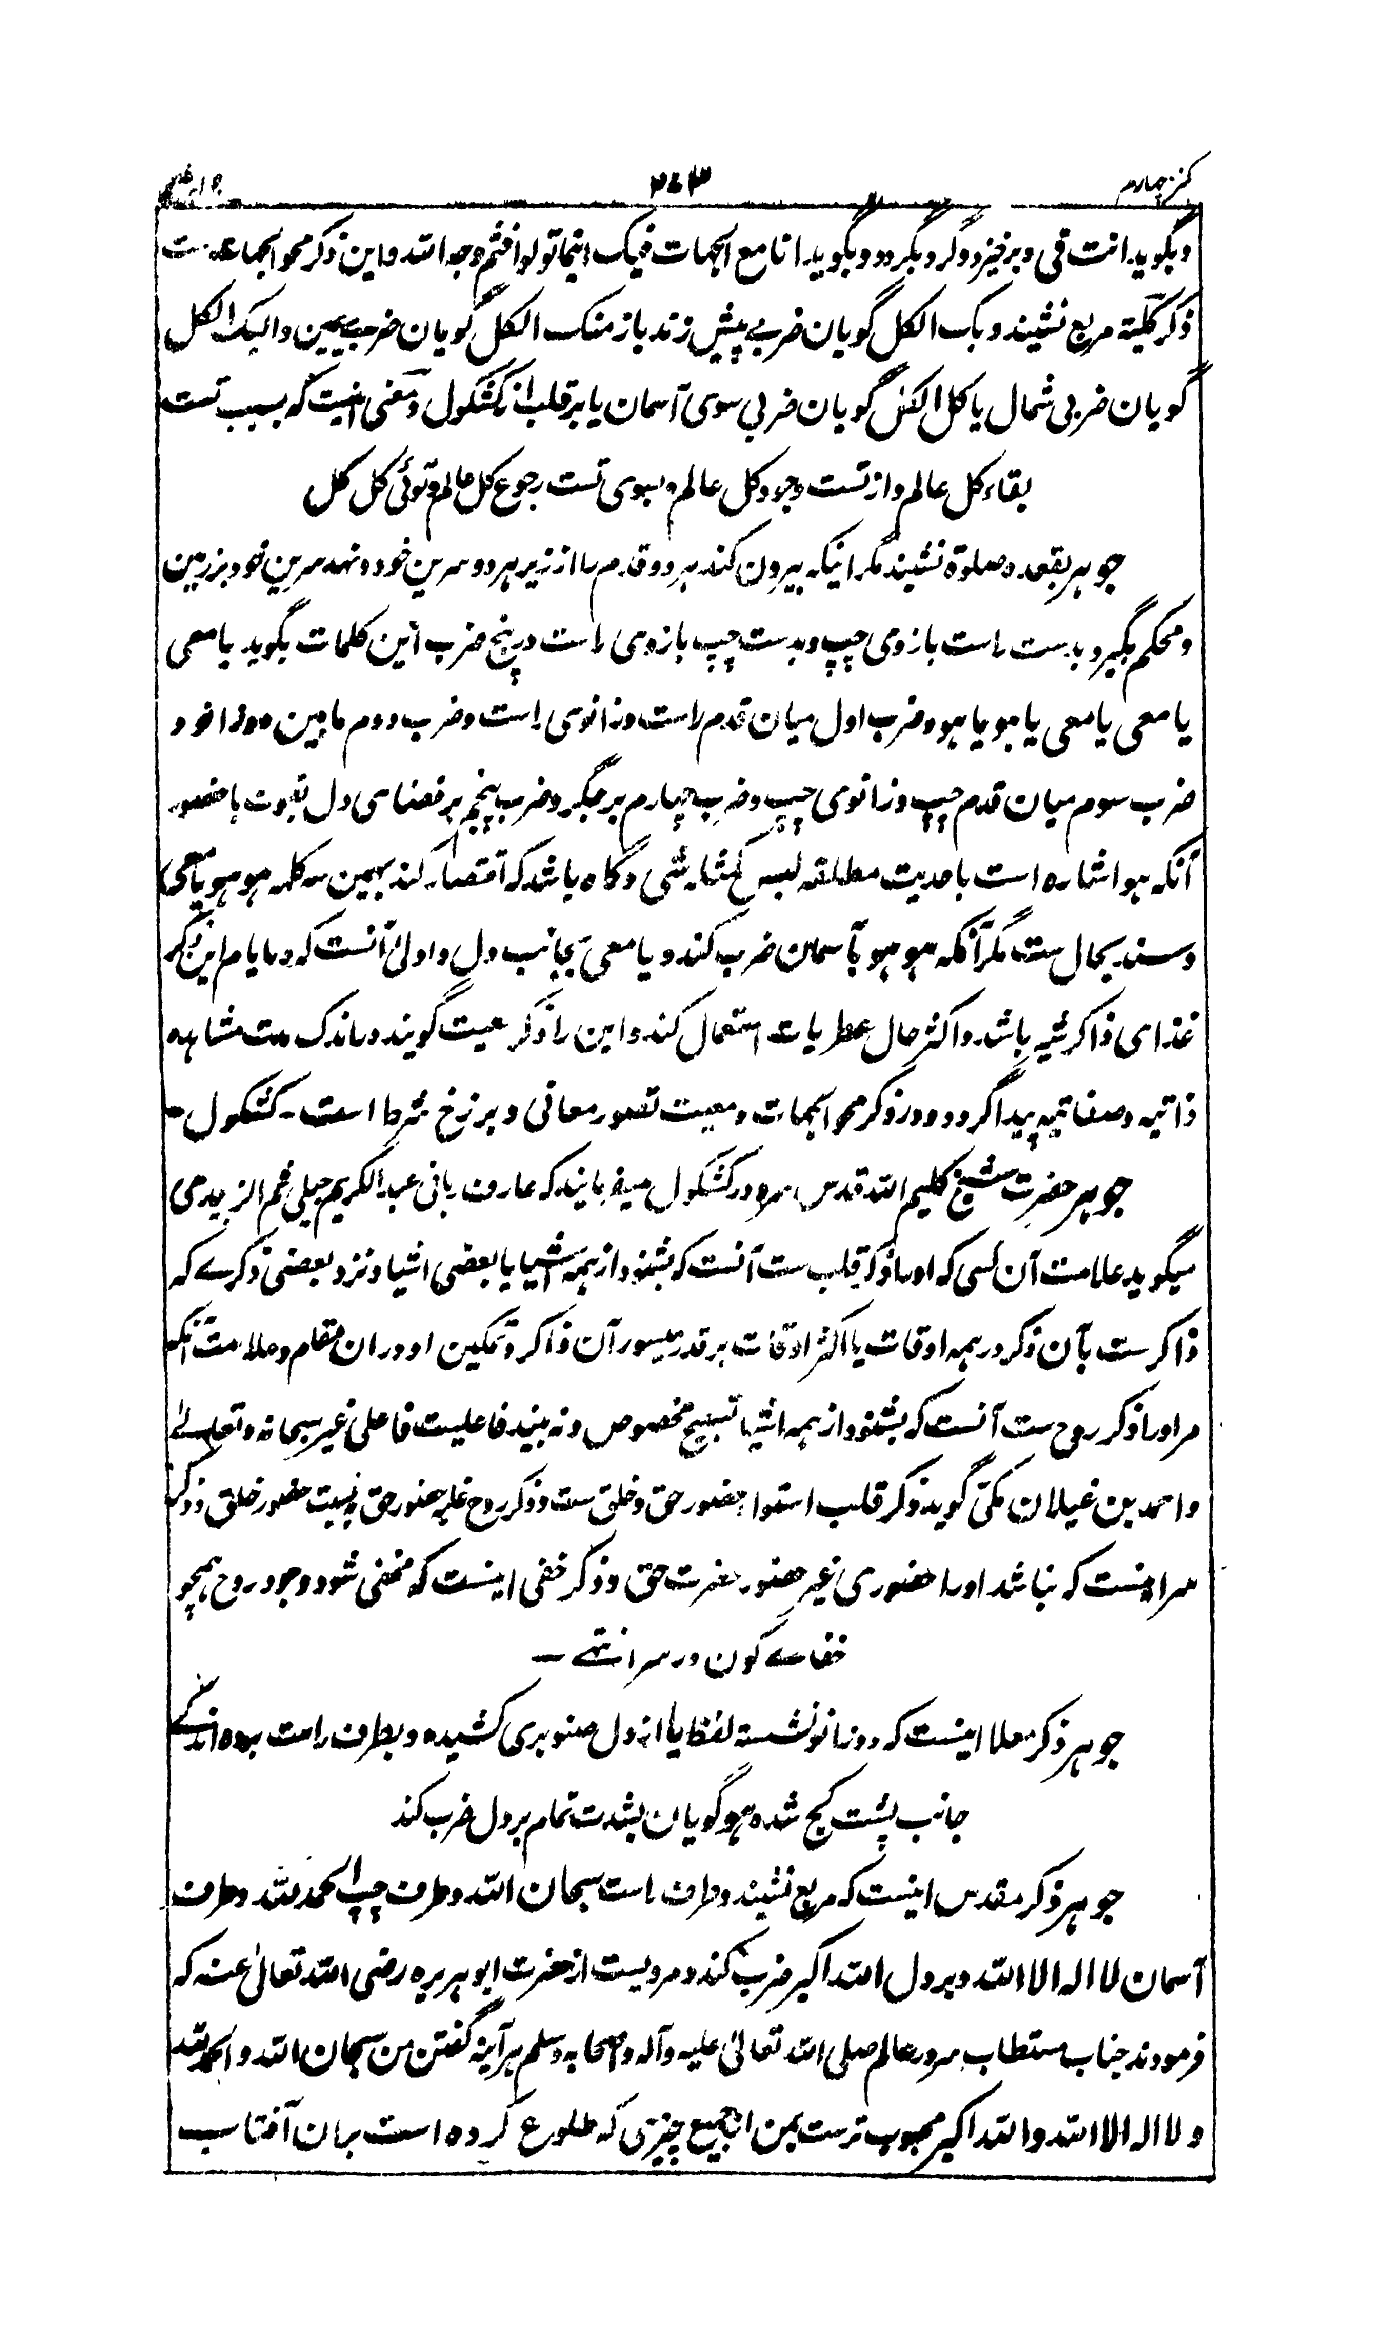 کنز چهارم ۲۷۳
وبگوید انت فی وبرخیزد و گرد بگردد و بگوید انا مع الجهات فیک اینما تولوا فثم وجه الله و این ذکر محو الجهات ست
ذکر کلیة مربع نشیند و بک الکل گویان ضربے پیش زند باز منک الکل گویان ضربے یمین و الیک الکل
گویان ضربی شمال یا کل الکل گویان ضربی سوی آسمان یا بر قلب از کشکول و معنی اینست که بسبب تست
بقاء کل عالم و از تست وجود کل عالم و بسوی تست رجوع کل عالم و توئی کل کل
جوهر بقعده صلوة نشیند مگر اینکه بیرون کند هر دو قدم را از زیر هر دو سرین خود و نهد سرین خود بر زمین
و محکم بگیرد بدست راست بازوی چپ و بدست چپ بازوی راست در پنج ضرب این کلمات بگوید یا معی
یا معی یا معی یا هو یا هو و ضرب اول میان قدم راست و زانوی راست و ضرب دوم مابین دو زانو و
ضرب سوم میان قدم چپ و زانوی چپ و ضرب چهارم بر جگر و ضرب پنجم بر فضای دل بقوت با حضور
آنکه هو اشاره است باحدیت مطلقه لیس کمثله شی و گاه باشد که اقتصار کند بهمین سه کلمه هو هو یا معی
و سند بحال ست مگر آنکه هو هو بآسمان ضرب کند و یا معی بجانب دل و اولی آنست که در ایام این ذکر
غذای ذاکر شیر باشد و اکثر حال عطریات استعمال کند و این را ذکر معیت گویند و در اندک مدت مشاهده
ذاتیه و صفاتیه پیدا گردد و در ذکر محو الجهات و معیت تصور معانی و برزخ شرط است - کشکول -
جوهر حضرت شیخ کلیم الله قدس سره در کشکول میفرمایند که عارف ربانی عبد الکریم جیلی ثم الزبیدی
میگوید علامت آن کسی که او را ذکر قلب ست آنست که بشنود از همه اشیا یا بعضی اشیا و نزد بعضی ذکرے که
ذاکر ست بآن ذکر در همه اوقات یا اکثر اوقات بر قدر میسور آن ذاکر و تمکین او در ان مقام و علامت آنکه
مر او را ذکر روح ست آنست که بشنود از همه اشیا تسبیح مخصوص و نه بیند فاعلیت فاعلی غیر سبحانه و تعالے
و احمد بن غیلان مکی گوید ذکر قلب استوا حضور حق و خلق ست و ذکر روح غلبه حضور حق بنسبت حضور خلق و ذکر
سر اینست که نباشد او را حضوری غیر حضور حضرت حق و ذکر خفی اینست که مخفی شود وجود روح همچو
خفاے کون در سر انتهے —
جوهر ذکر معلا اینست که دو زانو نشسته لفظ یا از دل صنوبری کشیده و بطرف راست برده اندکے
جانب پشت کج شده هو گویان بشدت تمام بر دل ضرب کند
جوهر ذکر مقدس اینست که مربع نشیند و طرف راست سبحان الله و طرف چپ الحمد لله و طرف
آسمان لا اله الا الله و بر دل الله اکبر ضرب کند و مرویست از حضرت ابو هریره رضی الله تعالی عنه که
فرمودند جناب مستطاب سرور عالم صلی الله تعالی علیه وآله واصحابه وسلم هر آینه گفتن من سبحان الله و الحمد لله
و لا اله الا الله و الله اکبر محبوب ترست بمن از جمیع چیزی که طلوع کرده است بران آفتاب